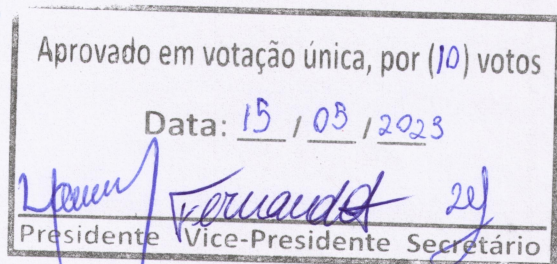 Aprovado em votação única, por (10) votos
Data: 15 / 05 / 2023
Fernanda
Presidente Vice-Presidente Secretário